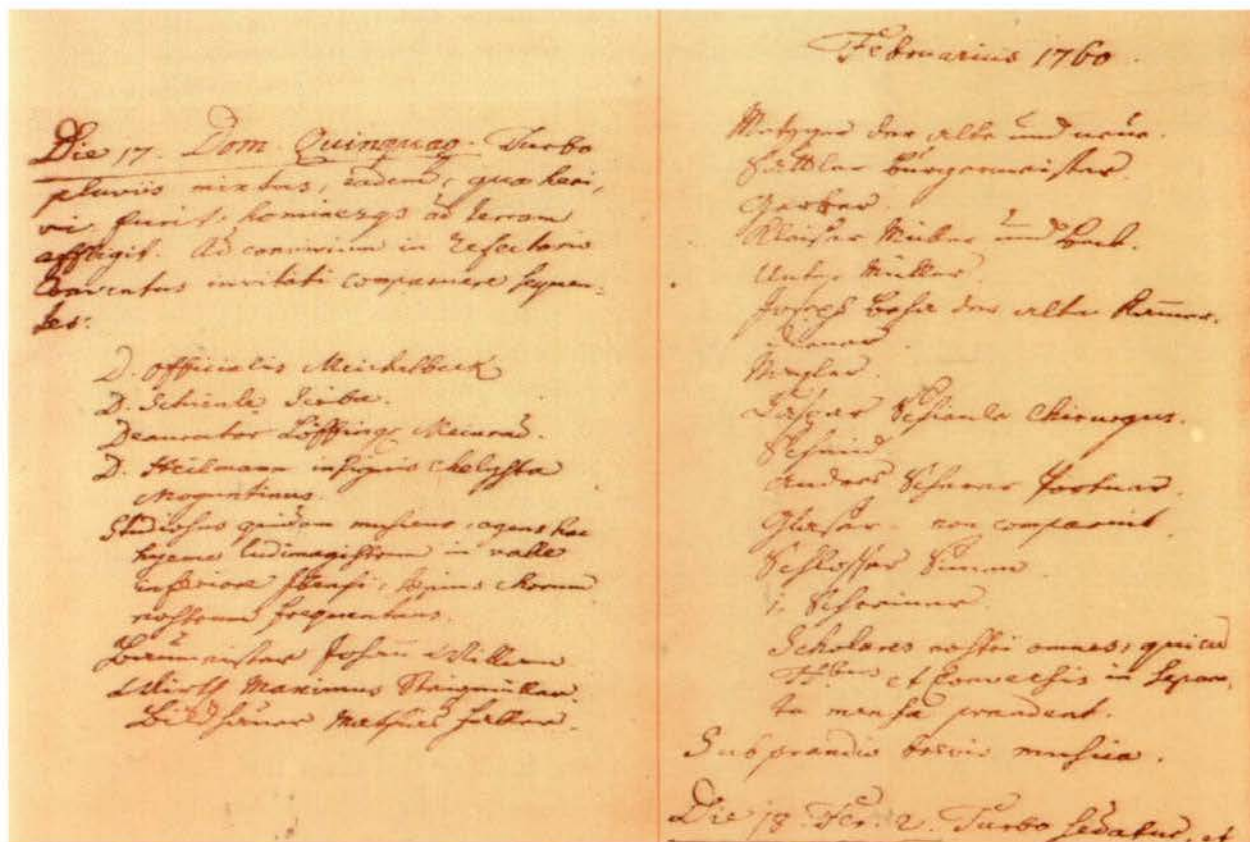 Die 17. Dom. Quinquag. Turbo
pluviis mixtus, eadem, qua heri,
vi furit, hominesqs ad terram
affligit. Ad convivium in Refectorio
Conventus invitati comparuere sequen-
tes:
D. Officialis Meichelbeck
D. Schienle Scriba.
Deaurator Löffing Meinrad.
D. Heilmann insignis chelysta
Moguntinus.
Studiosus quidam musicus, agens hac
hyeme ludimagistrum in valle
inferiore, saepius chorum
nostrum frequentans.
Baumeister Johan Willam
Wirth Maximus Steigmüller.
Bildhauer Mathias Faller.
Februarius 1760.
Metzger der alte und neue.
Sattler Burgermeister.
Gerber.
Huber und
Unter Müller.
Joseph der alte Kammer-
diener.
Caspar Schienle Chirurgus.
Schmid
Anders Scherer Portner.
Glaser. non comparuit.
Schlosser Simon.
Schreiner.
Scholares nostri omnes, qui cu
et Conversis in separa-
ta mensa prandent.
Sub prandio brevis musica.
Die 18. Fer. 2. Turbo sedatur, et